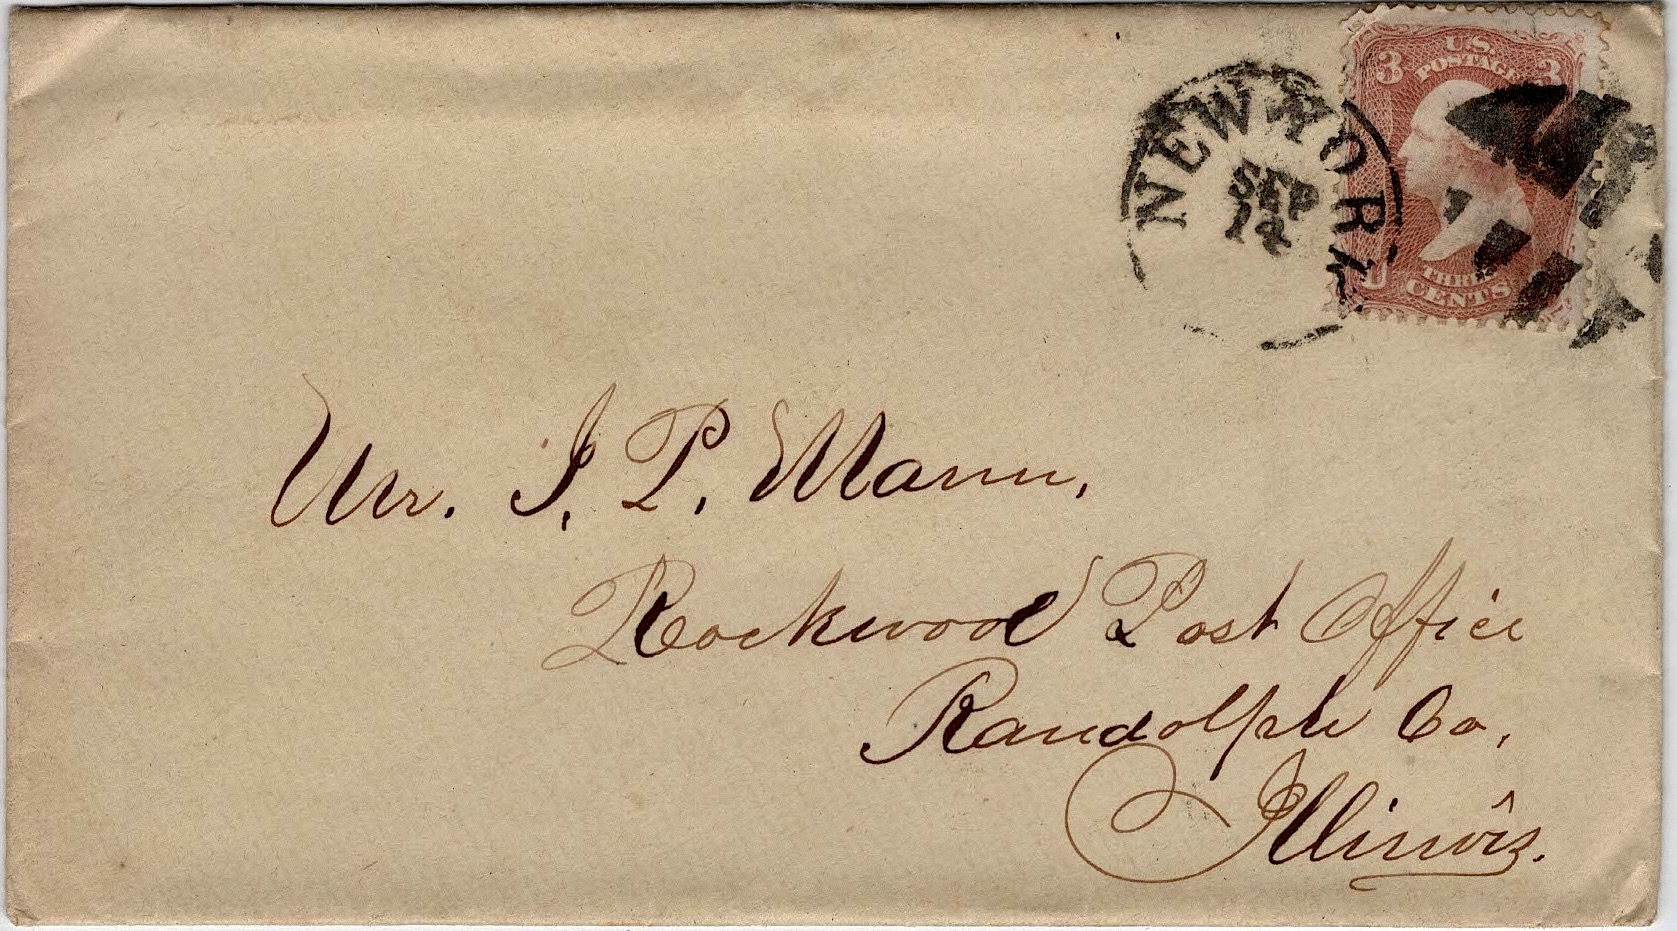 U.S.
POSTAGE
3 3
NEW YORK
SEP
12
THREE
CENTS
Mr. J. P. Mann,
Rockwood Post Office
Randolph Co,
Illinois.